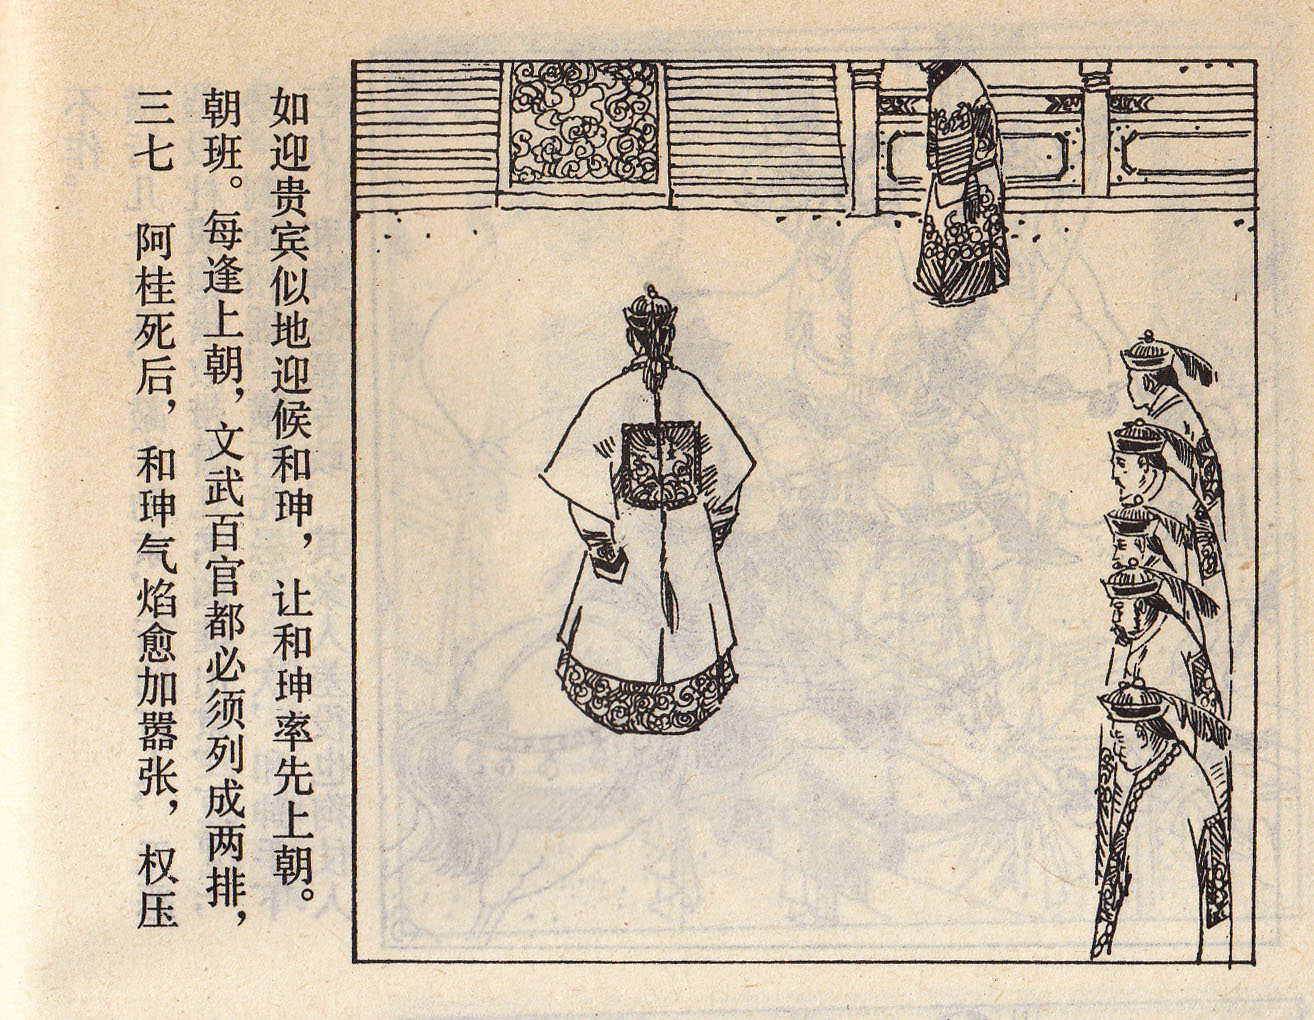 三七 阿桂死后，和珅气焰愈加嚣张，权压
朝班。每逢上朝，文武百官都必须列成两排，
如迎贵宾似地迎候和珅，让和珅率先上朝。